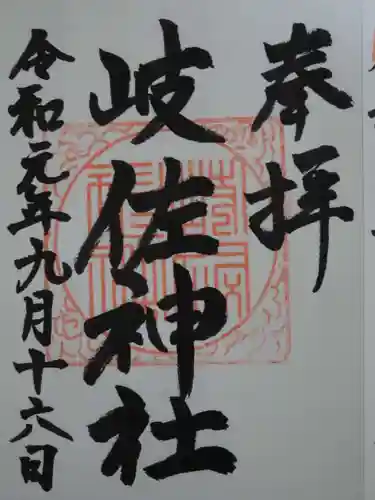 奉拝
岐佐神社
令和元年九月十六日